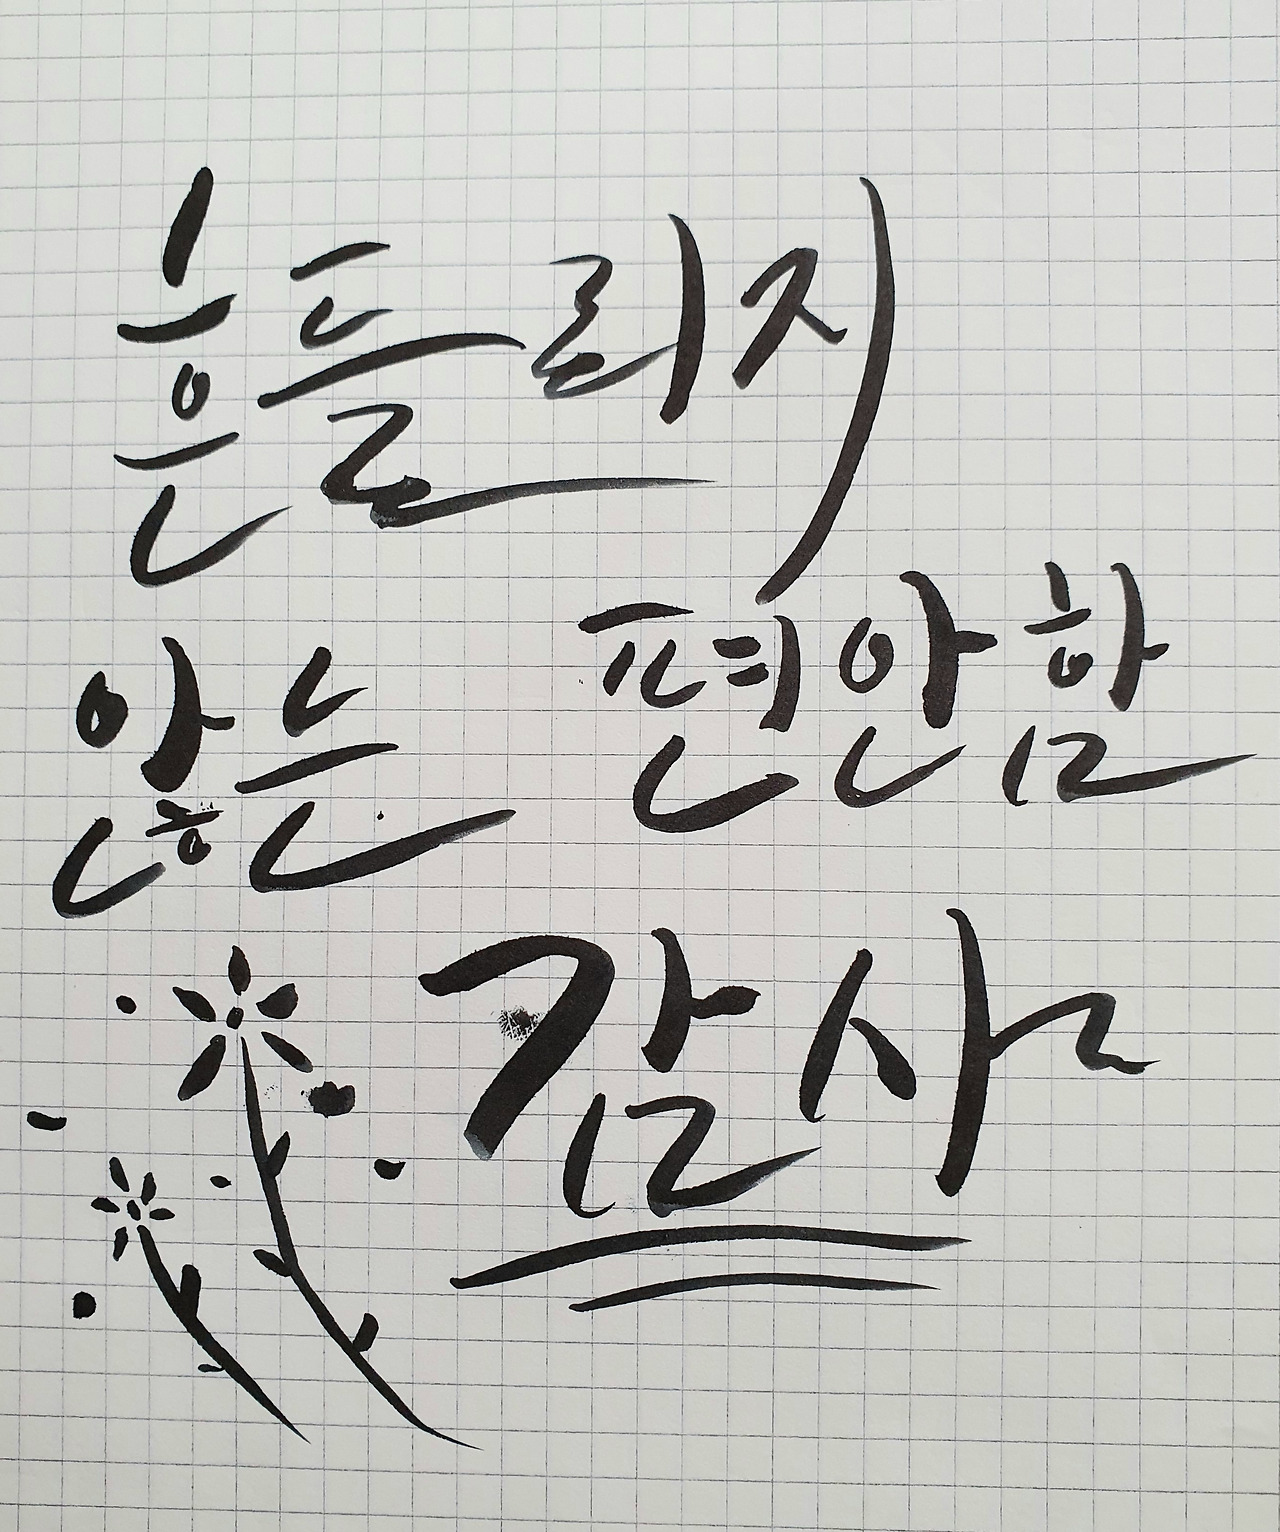 흔들리지
않는 편안함
감사